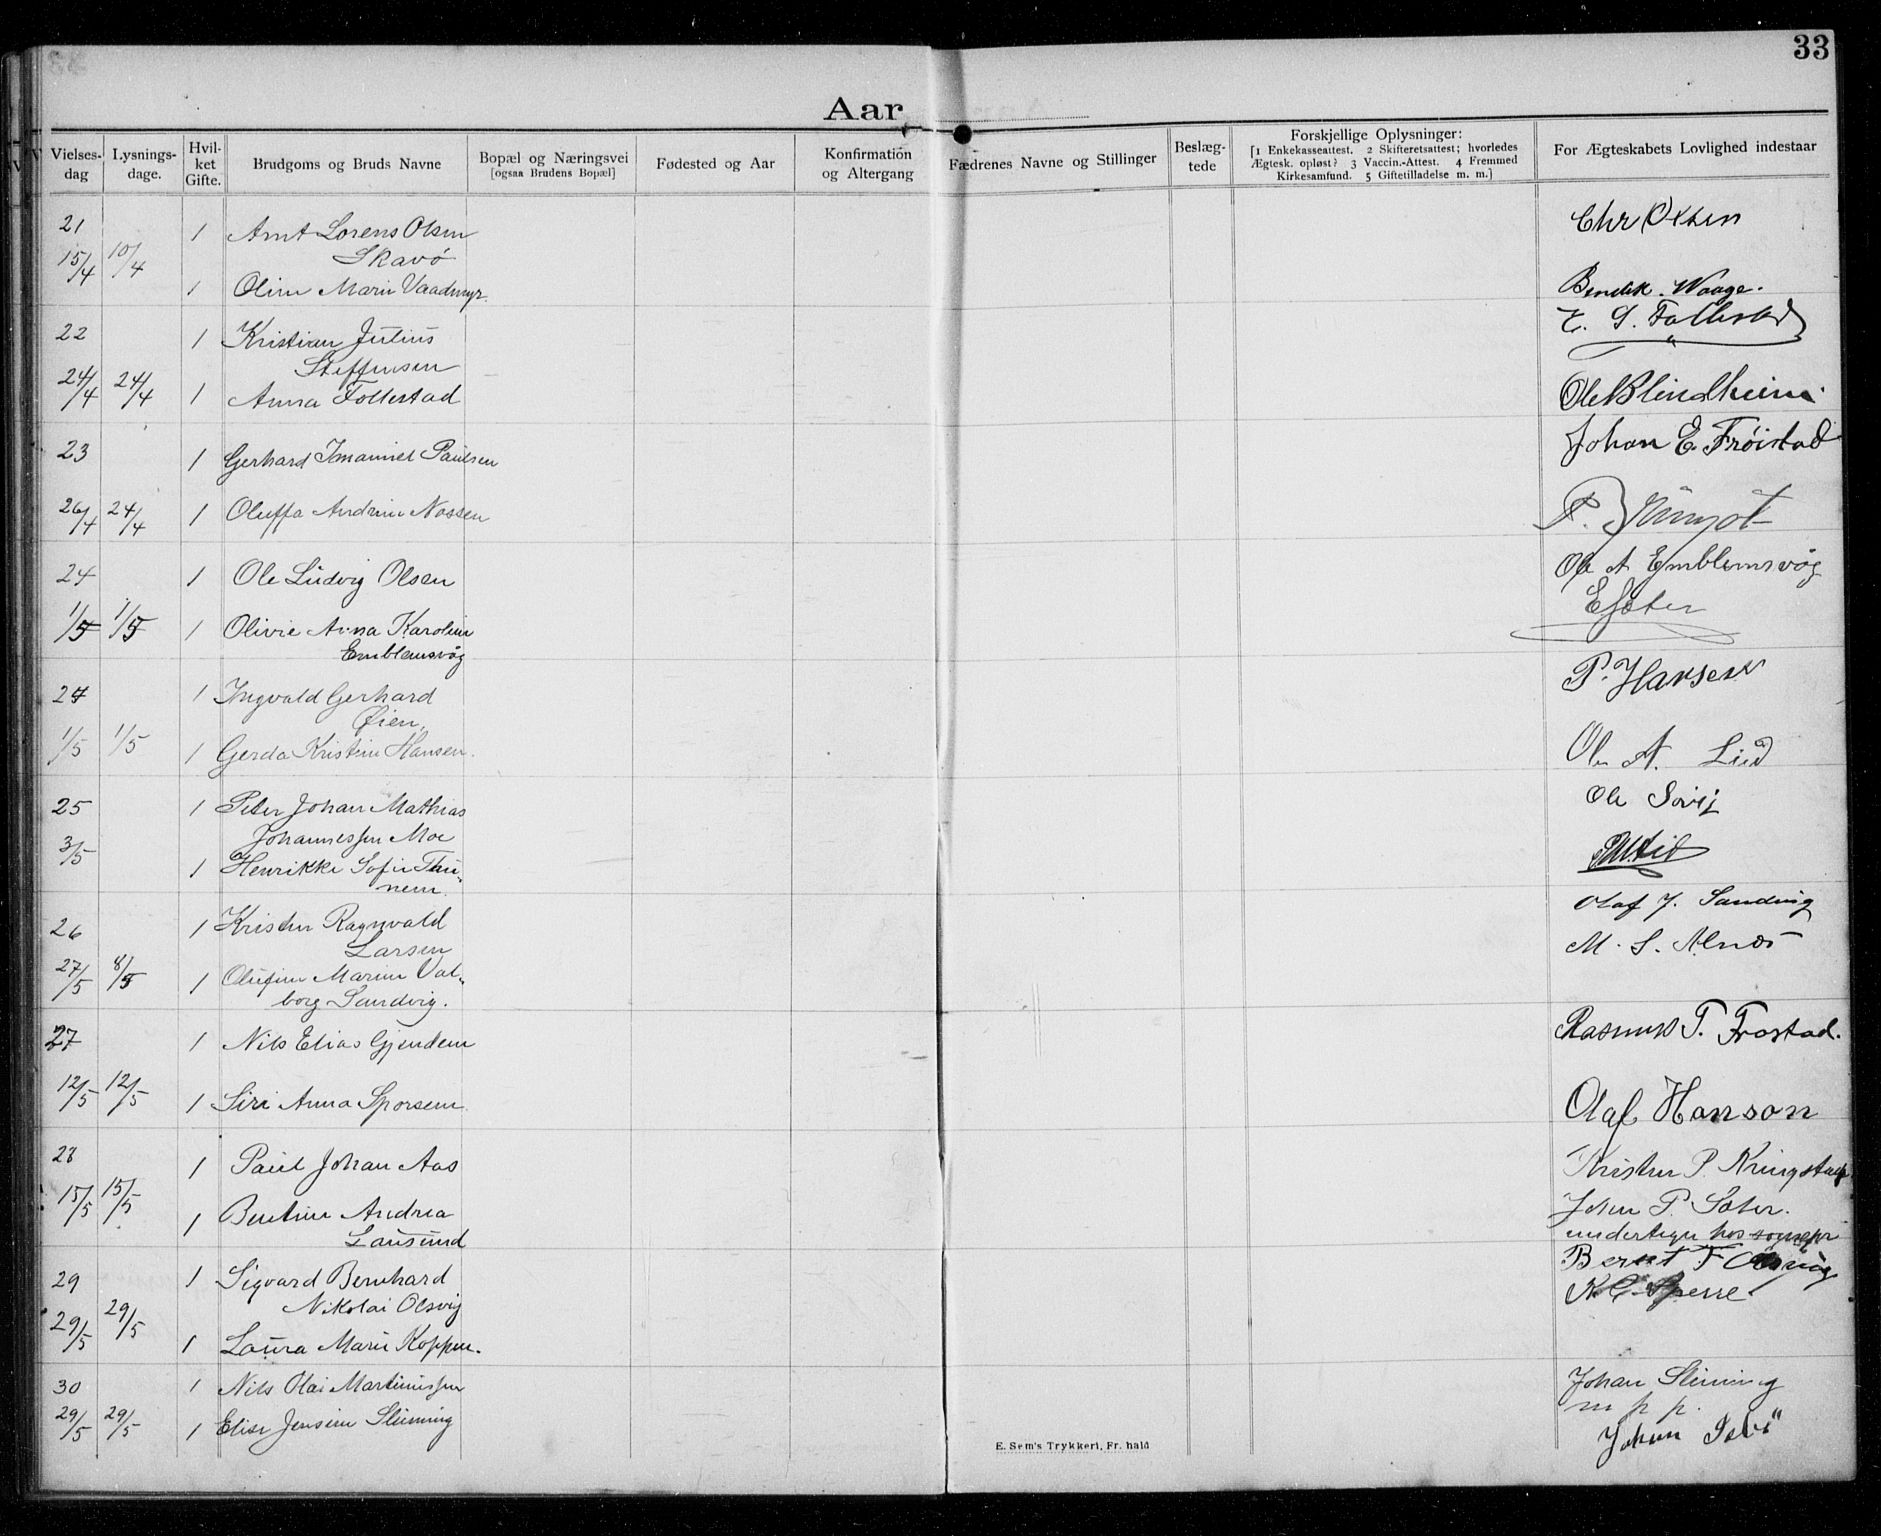 33
Aar
Vielses-dag
Lysnings-dage.
Hvil-ket Gifte.
Brudgoms og Bruds Navne
Bopæl og Næringsvei
[ogsaa Brudens Bopæl]
Fødested og Aar
Konfirmation og Altergang
Fædrenes Navne og Stillinger
Beslæg-tede
Forskjellige Oplysninger:
[1 Enkekasseattest. 2 Skifteretsattest; hvorledes
Ægtesk. opløst? 3 Vaccin.-Attest. 4 Fremmed
Kirkesamfund. 5 Giftetilladelse m. m.]
For Ægteskabets Lovlighed indestaar
21 1 Arnt Lorens Olsen Chr Olsen
15/4 10/4 Skavø
1 Oline Marie Vaadmyr Bendik. Waage.
E. S. Follestad
22 1 Kristian Julius
Steffensen
24/4 24/4 1 Anna Follestad Ole Blindheim
Johan E. Frøistad
23 1 Gerhard Imanuel Paulsen
26/4 24/4 1 Oluffa Andrine Nossen P.
Ole A Emblemsvåg
24 1 Ole Ludvig Olsen
E Sæter
1/5 1/5 1 Olivie Anna Karoline
Emblemsvåg
P. Hansen
24 1 Ingvald Gerhard
Øien
1/5 1/5 1 Gerda Kristine Hansen. Ole A. Lid
Ole
25 1 Peter Johan Mathias
Johannessen Moe
3/5 1 Henrikke Sofie Thu-
nem.
Olaf J. Sandvig
26 1 Kristen Ragnvald
Larsen M. S. Alnæs
27/5 8/5 1 Olufine Marine Val-
borg Sandvig.
27 1 Nils Elias Gjendem Rasmus T. Frostad.
12/5 12/5 1 Siri Anna Sporsem Olaf Hanson
28 1 Paul Johan Aas Kristen P. Kringstad
15/5 15/5 1 Bentine Andrea Johan P. Sæter.
Lausund undertegn hos sognepr
Bernt F
29 1 Sigvard Bernhard K. Sperre
Nikolai Olsvig
29/5 29/5 1 Laura Marie Koppen.
30 1 Nils Olai Martinussen Johan Slinning
m p p.
29/5 29/5 1 Elise Jensine Slinning Johan
E. Sem's Trykkeri, Fr.hald